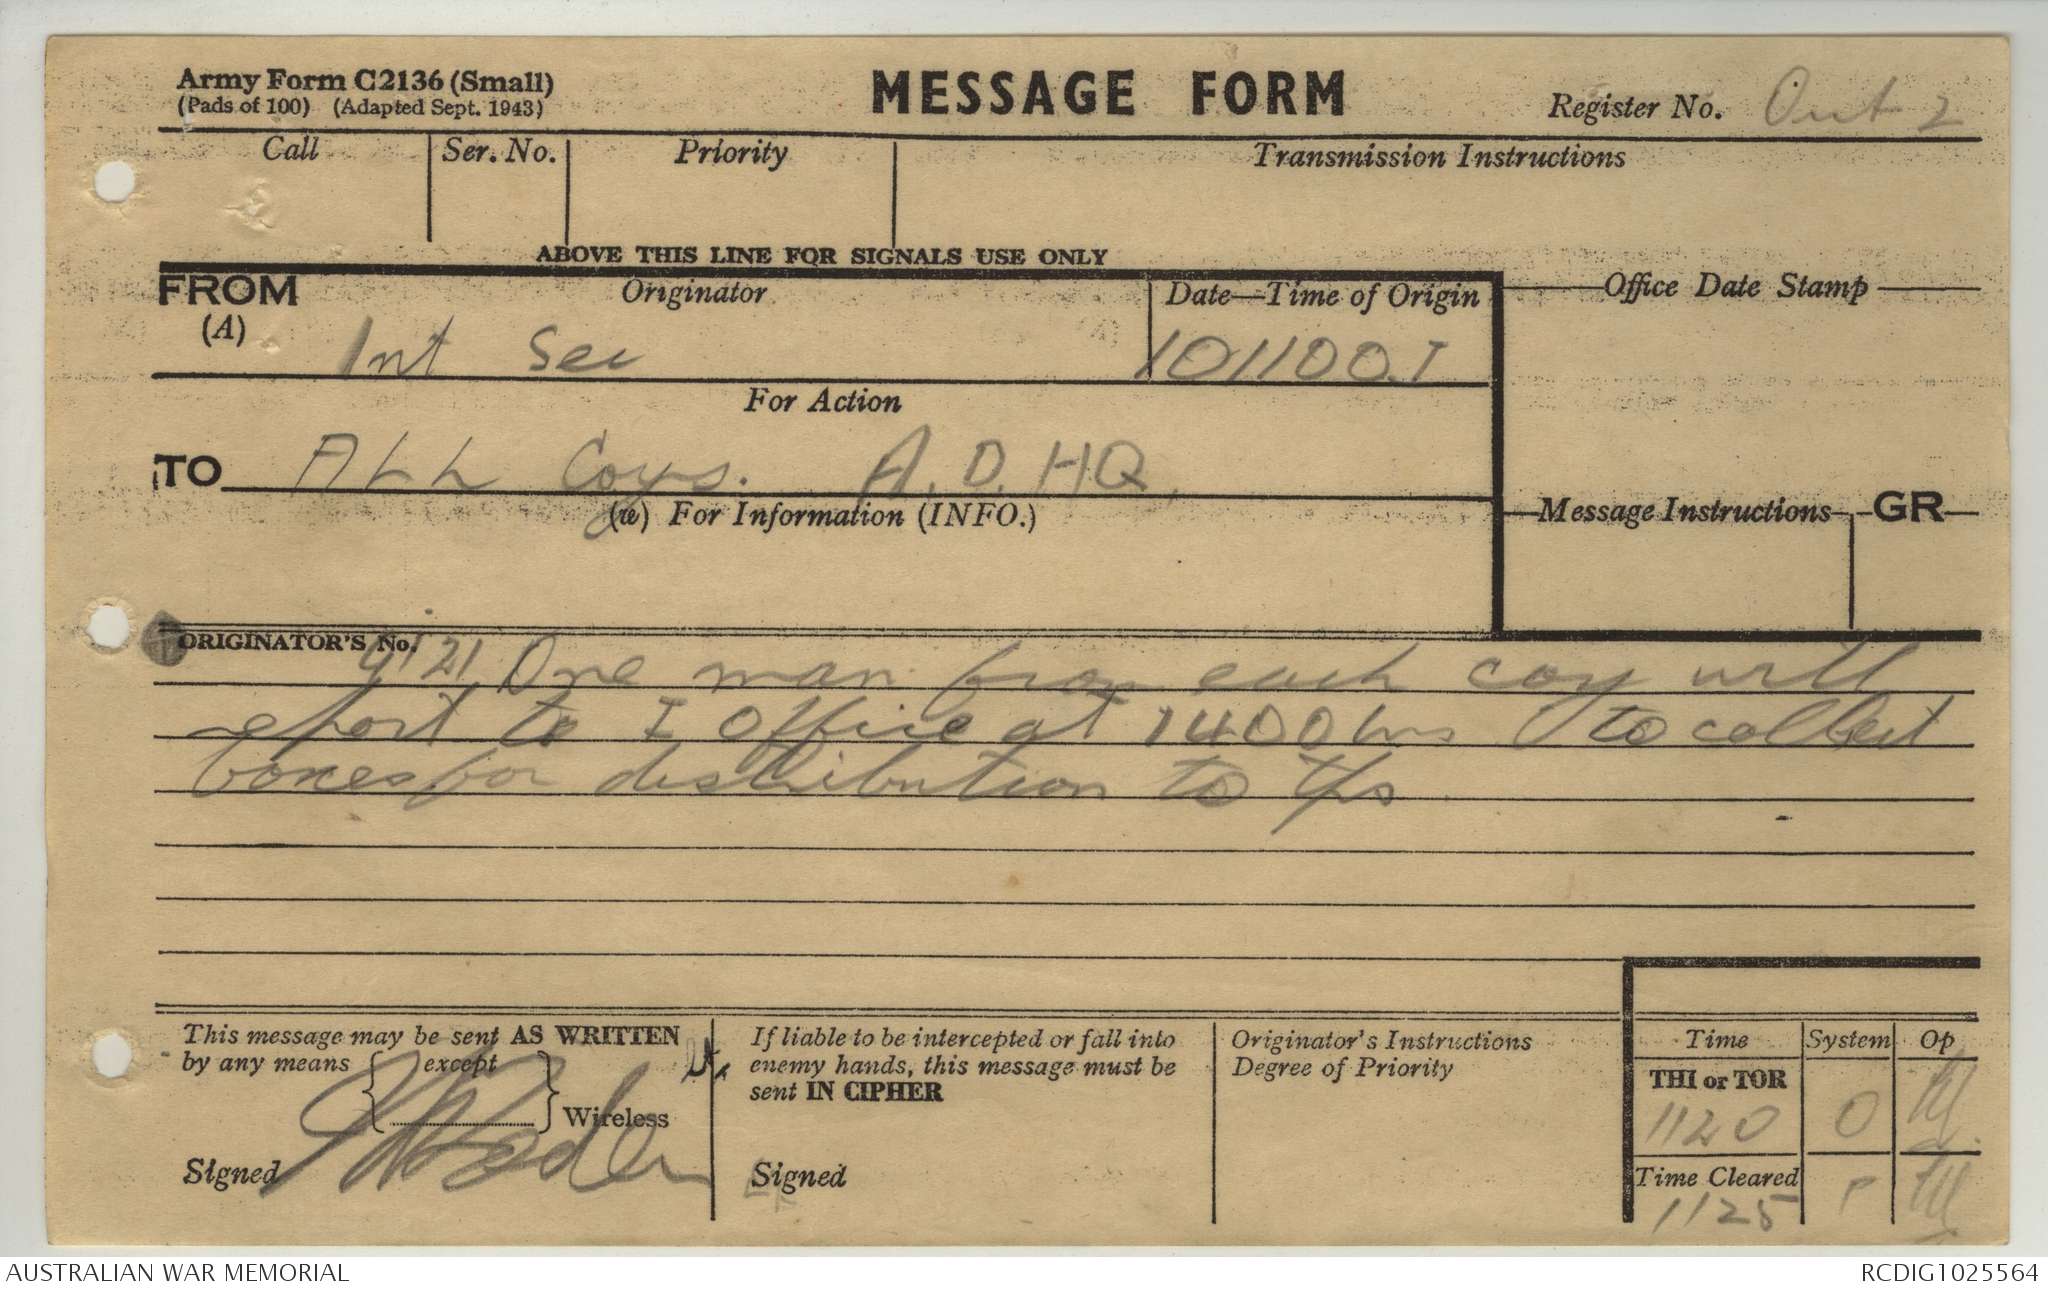 Army Form C2136 (Small)
(Pads of 100) (Adapted Sept. 1943)
MESSAGE FORM
Register No. Out 2
Call Ser. No. Priority Transmission Instructions
ABOVE THIS LINE FOR SIGNALS USE ONLY
FROM Originator Date—Time of Origin Office Date Stamp
(A)
Int Sec 101100.I
For Action
TO ALL Coys. A.D. HQ.
(w) For Information (INFO.) Message Instructions GR
ORIGINATOR'S No. 121 One man from each coy will
report to I Office at 1400 hrs to collect
boxes for distribution to tps
This message may be sent AS WRITTEN
by any means except
Wireless
Signed
If liable to be intercepted or fall into
enemy hands, this message must be
sent IN CIPHER
Signed
Originator's Instructions
Degree of Priority
Time System Op
THI or TOR
1120 O
Time Cleared
1125 P
AUSTRALIAN WAR MEMORIAL RCDIG1025564